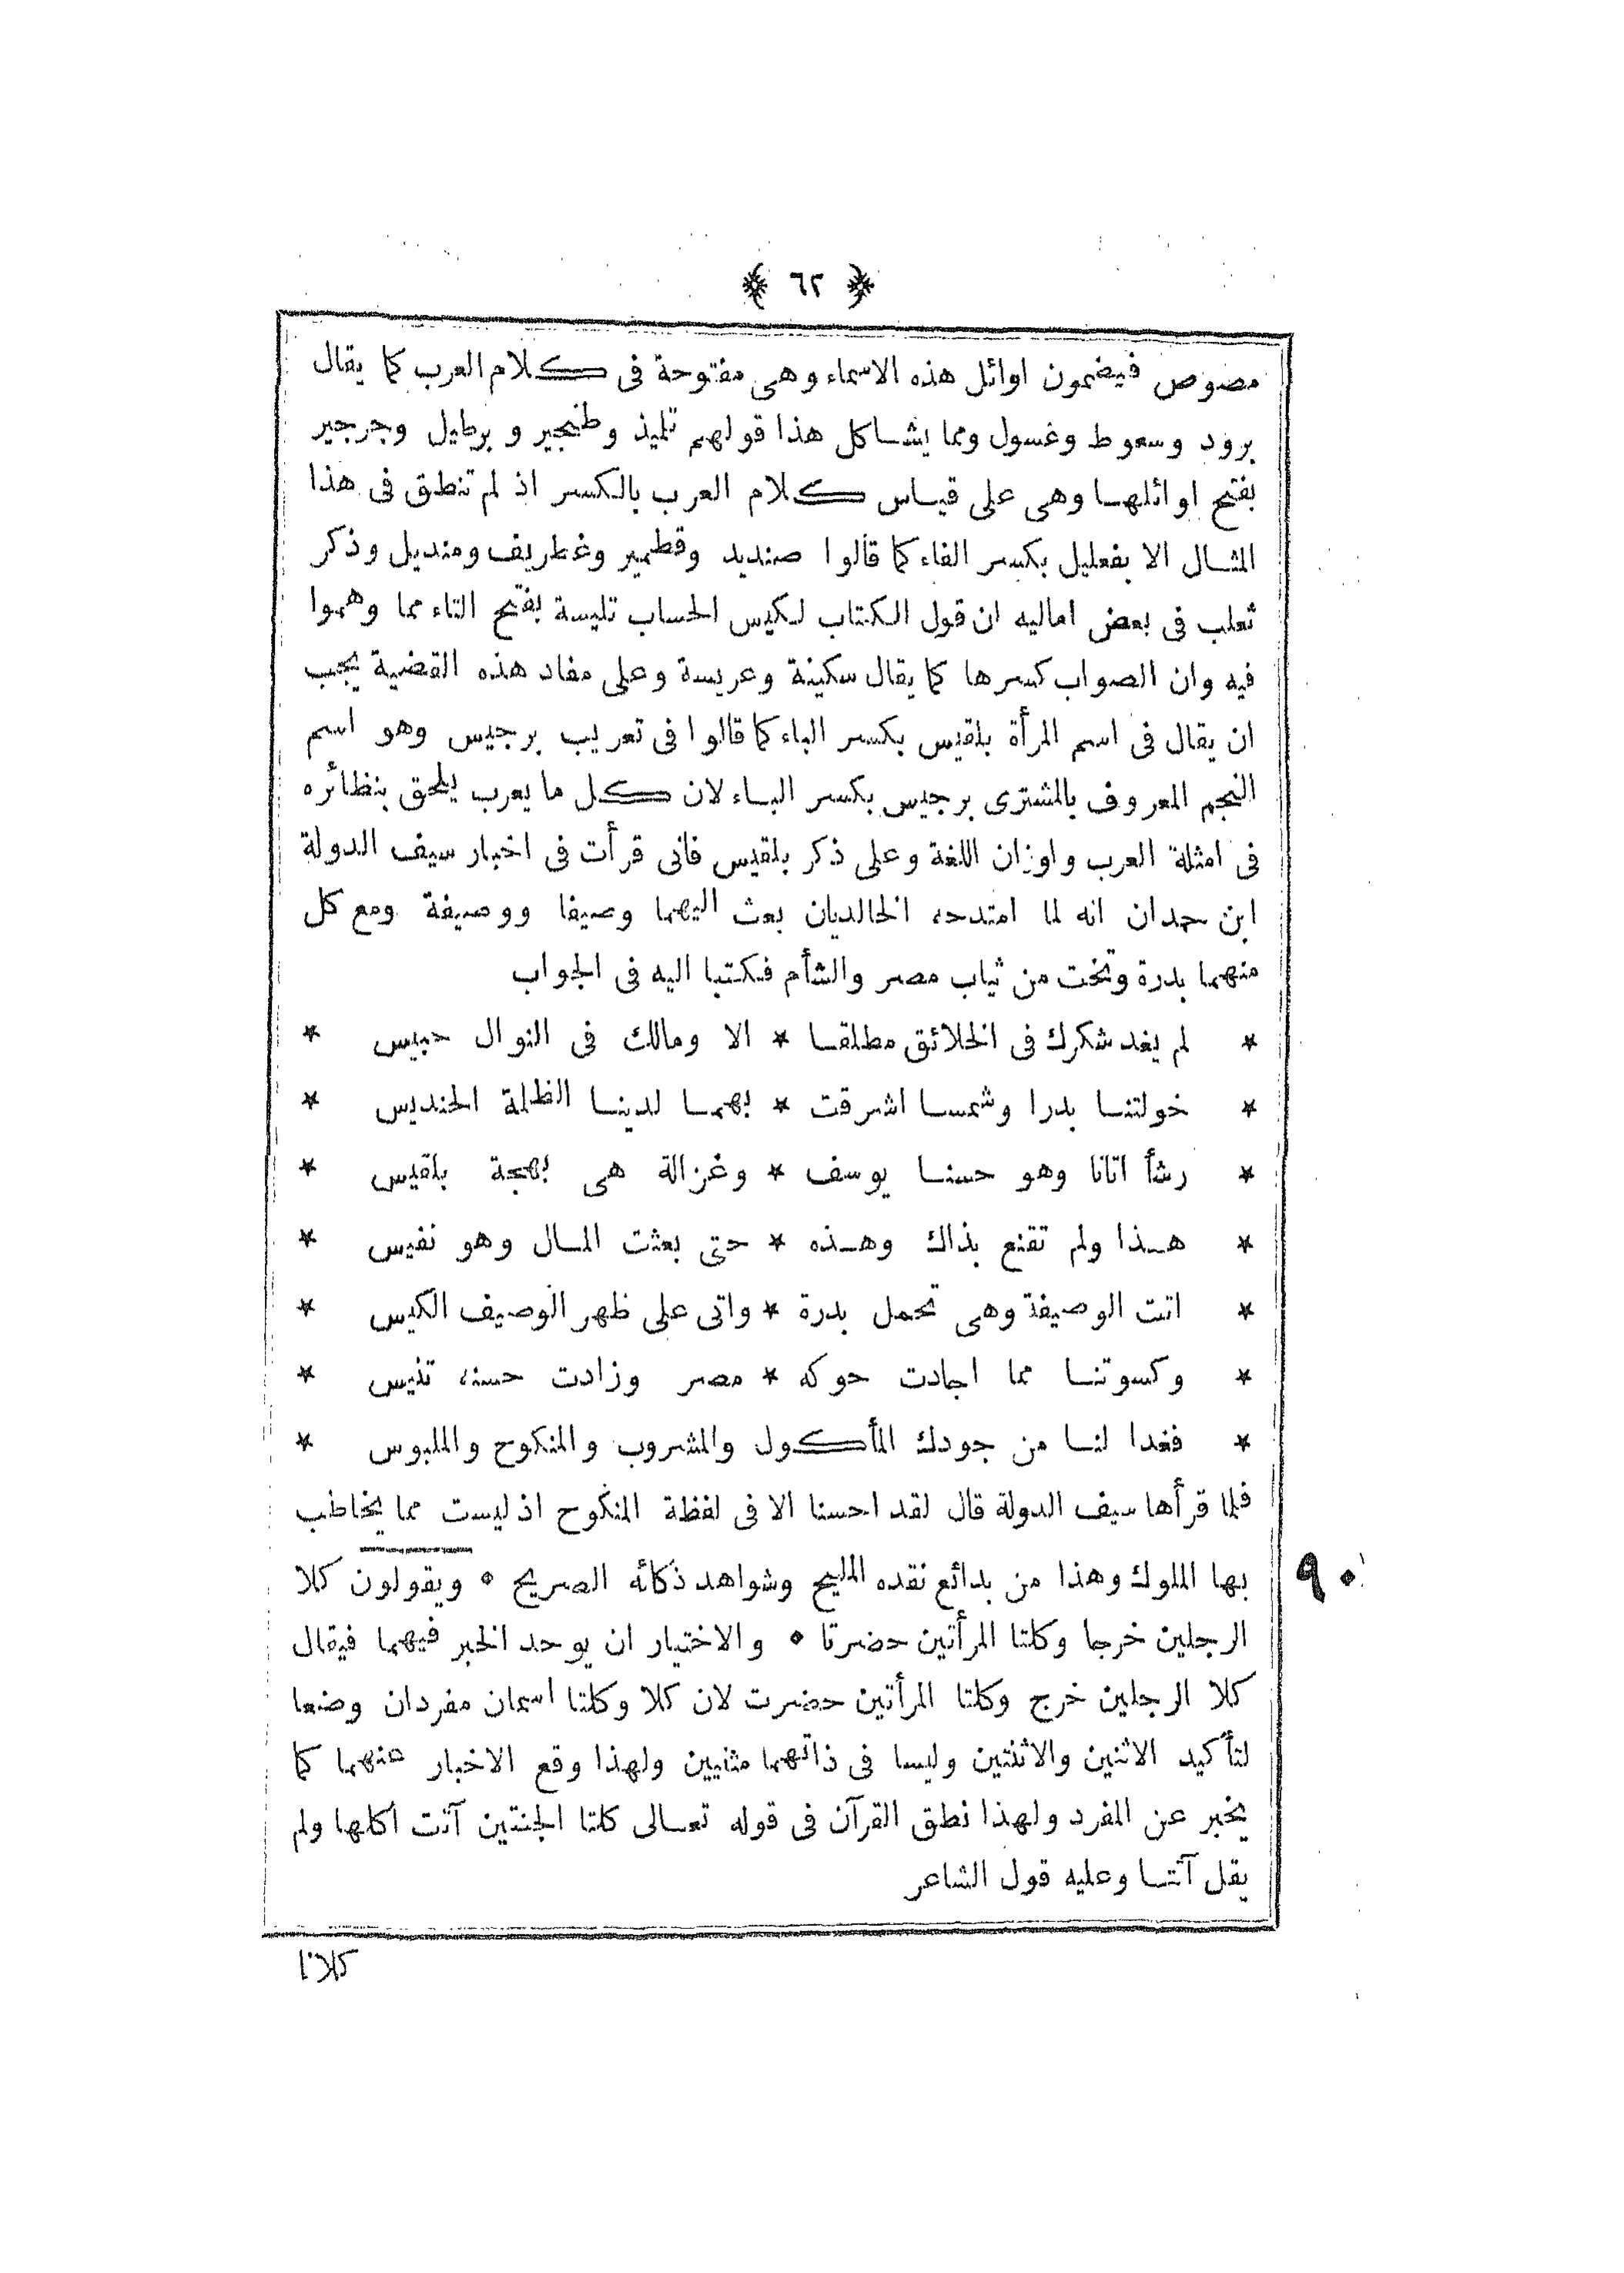 ﴿ ٦٢ ﴾
مصوص فيضمون اوائل هذه الاسماء وهى مفتوحة فى كلام العرب كما يقال
برود وسعوط وغسول ومما يشاكل هذا قولهم تلميذ وطنجير و برطيل وجرجير
بفتح اوائلها وهى على قياس كلام العرب بالكسر اذ لم تنطق فى هذا
المثال الا بفعليل بكسر الفاء كما قالوا صنديد وقطمير وغطريف ومنديل وذكر
ثعلب فى بعض اماليه ان قول الكتاب لكيس الحساب تليسة بفتح التاء مما وهموا
فيه وان الصواب كسرها كما يقال سكينة وعريسة وعلى مفاد هذه القضية يجب
ان يقال فى اسم المرأة بلقيس بكسر الباء كما قالوا فى تعريب برجيس وهو اسم
النجم المعروف بالمشترى برجيس بكسر الباء لان كل ما يعرب يلحق بنظائره
فى امثلة العرب واوزان اللغة وعلى ذكر بلقيس فانى قرأت فى اخبار سيف الدولة
ابن حمدان انه لما امتدحه الخالديان بعث اليهما وصيفا ووصيفة ومع كل
منهما بدرة وتخت من ثياب مصر والشأم فكتبا اليه فى الجواب
* لم يغد شكرك فى الخلائق مطلقا * الا ومالك فى النوال حبيس *
* خولتنا بدرا وشمسا اشرقت * بهما لدينا الظلمة الحنديس *
* رشأ اتانا وهو حسنا يوسف * وغزالة هى بهجة بلقيس *
* هذا ولم تقنع بذاك وهذه * حتى بعثت المال وهو نفيس *
* اتت الوصيفة وهى تحمل بدرة * واتى على ظهر الوصيف الكيس *
* وكسوتنا مما اجادت حوكه * مصر وزادت حسنه تنيس *
* فغدا لنا من جودك المأكول والمشروب والمنكوح والملبوس *
فلما قرأها سيف الدولة قال لقد احسنا الا فى لفظة المنكوح اذ ليست مما يخاطب
بها الملوك وهذا من بدائع نقده المليح وشواهد ذكائه الصريح ٭ ويقولون كلا
٩٠
الرجلين خرجا وكلتا المرأتين حضرتا ٭ والاختيار ان يوحد الخبر فيهما فيقال
كلا الرجلين خرج وكلتا المرأتين حضرت لان كلا وكلتا اسمان مفردان وضعا
لتأكيد الاثنين والاثنتين وليسا فى ذاتهما مثنيين ولهذا وقع الاخبار عنهما كما
يخبر عن المفرد ولهذا نطق القرآن فى قوله تعالى كلتا الجنتين آتت أكلها ولم
يقل آتتا وعليه قول الشاعر
كلانا